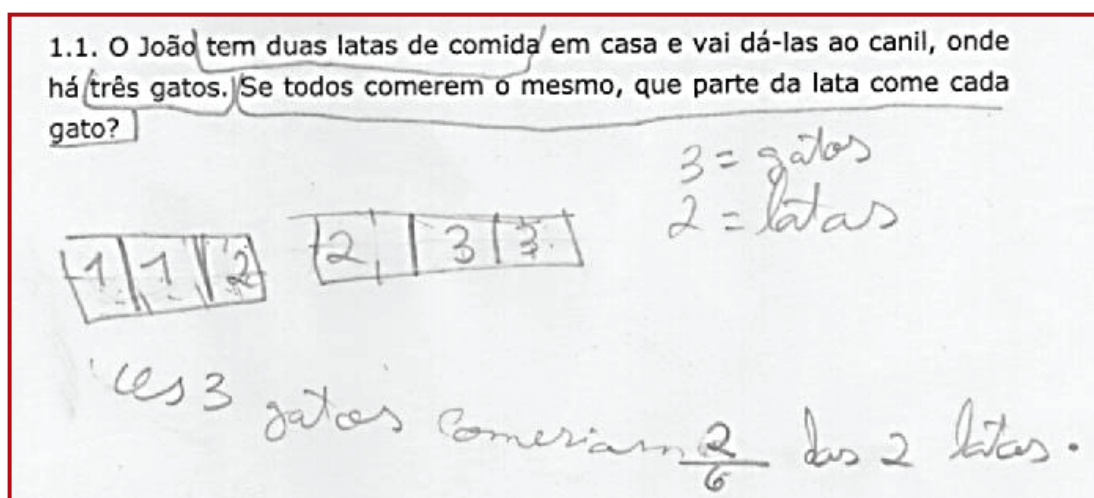 1.1. O João tem duas latas de comida em casa e vai dá-las ao canil, onde
há três gatos. Se todos comerem o mesmo, que parte da lata come cada
gato?
3 = gatos
2 = latas
1 1 2 2 3 3
3 gatos comeriam 2/6 das 2 latas.